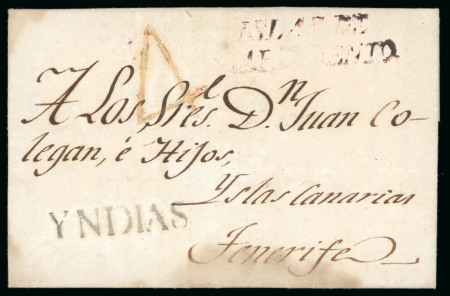 ISLAS DE
BARLOVENTO
A Los Sres. Dn. Juan Co-
legan, é Hijos,
Yslas Canarias
YNDIAS
Tenerife